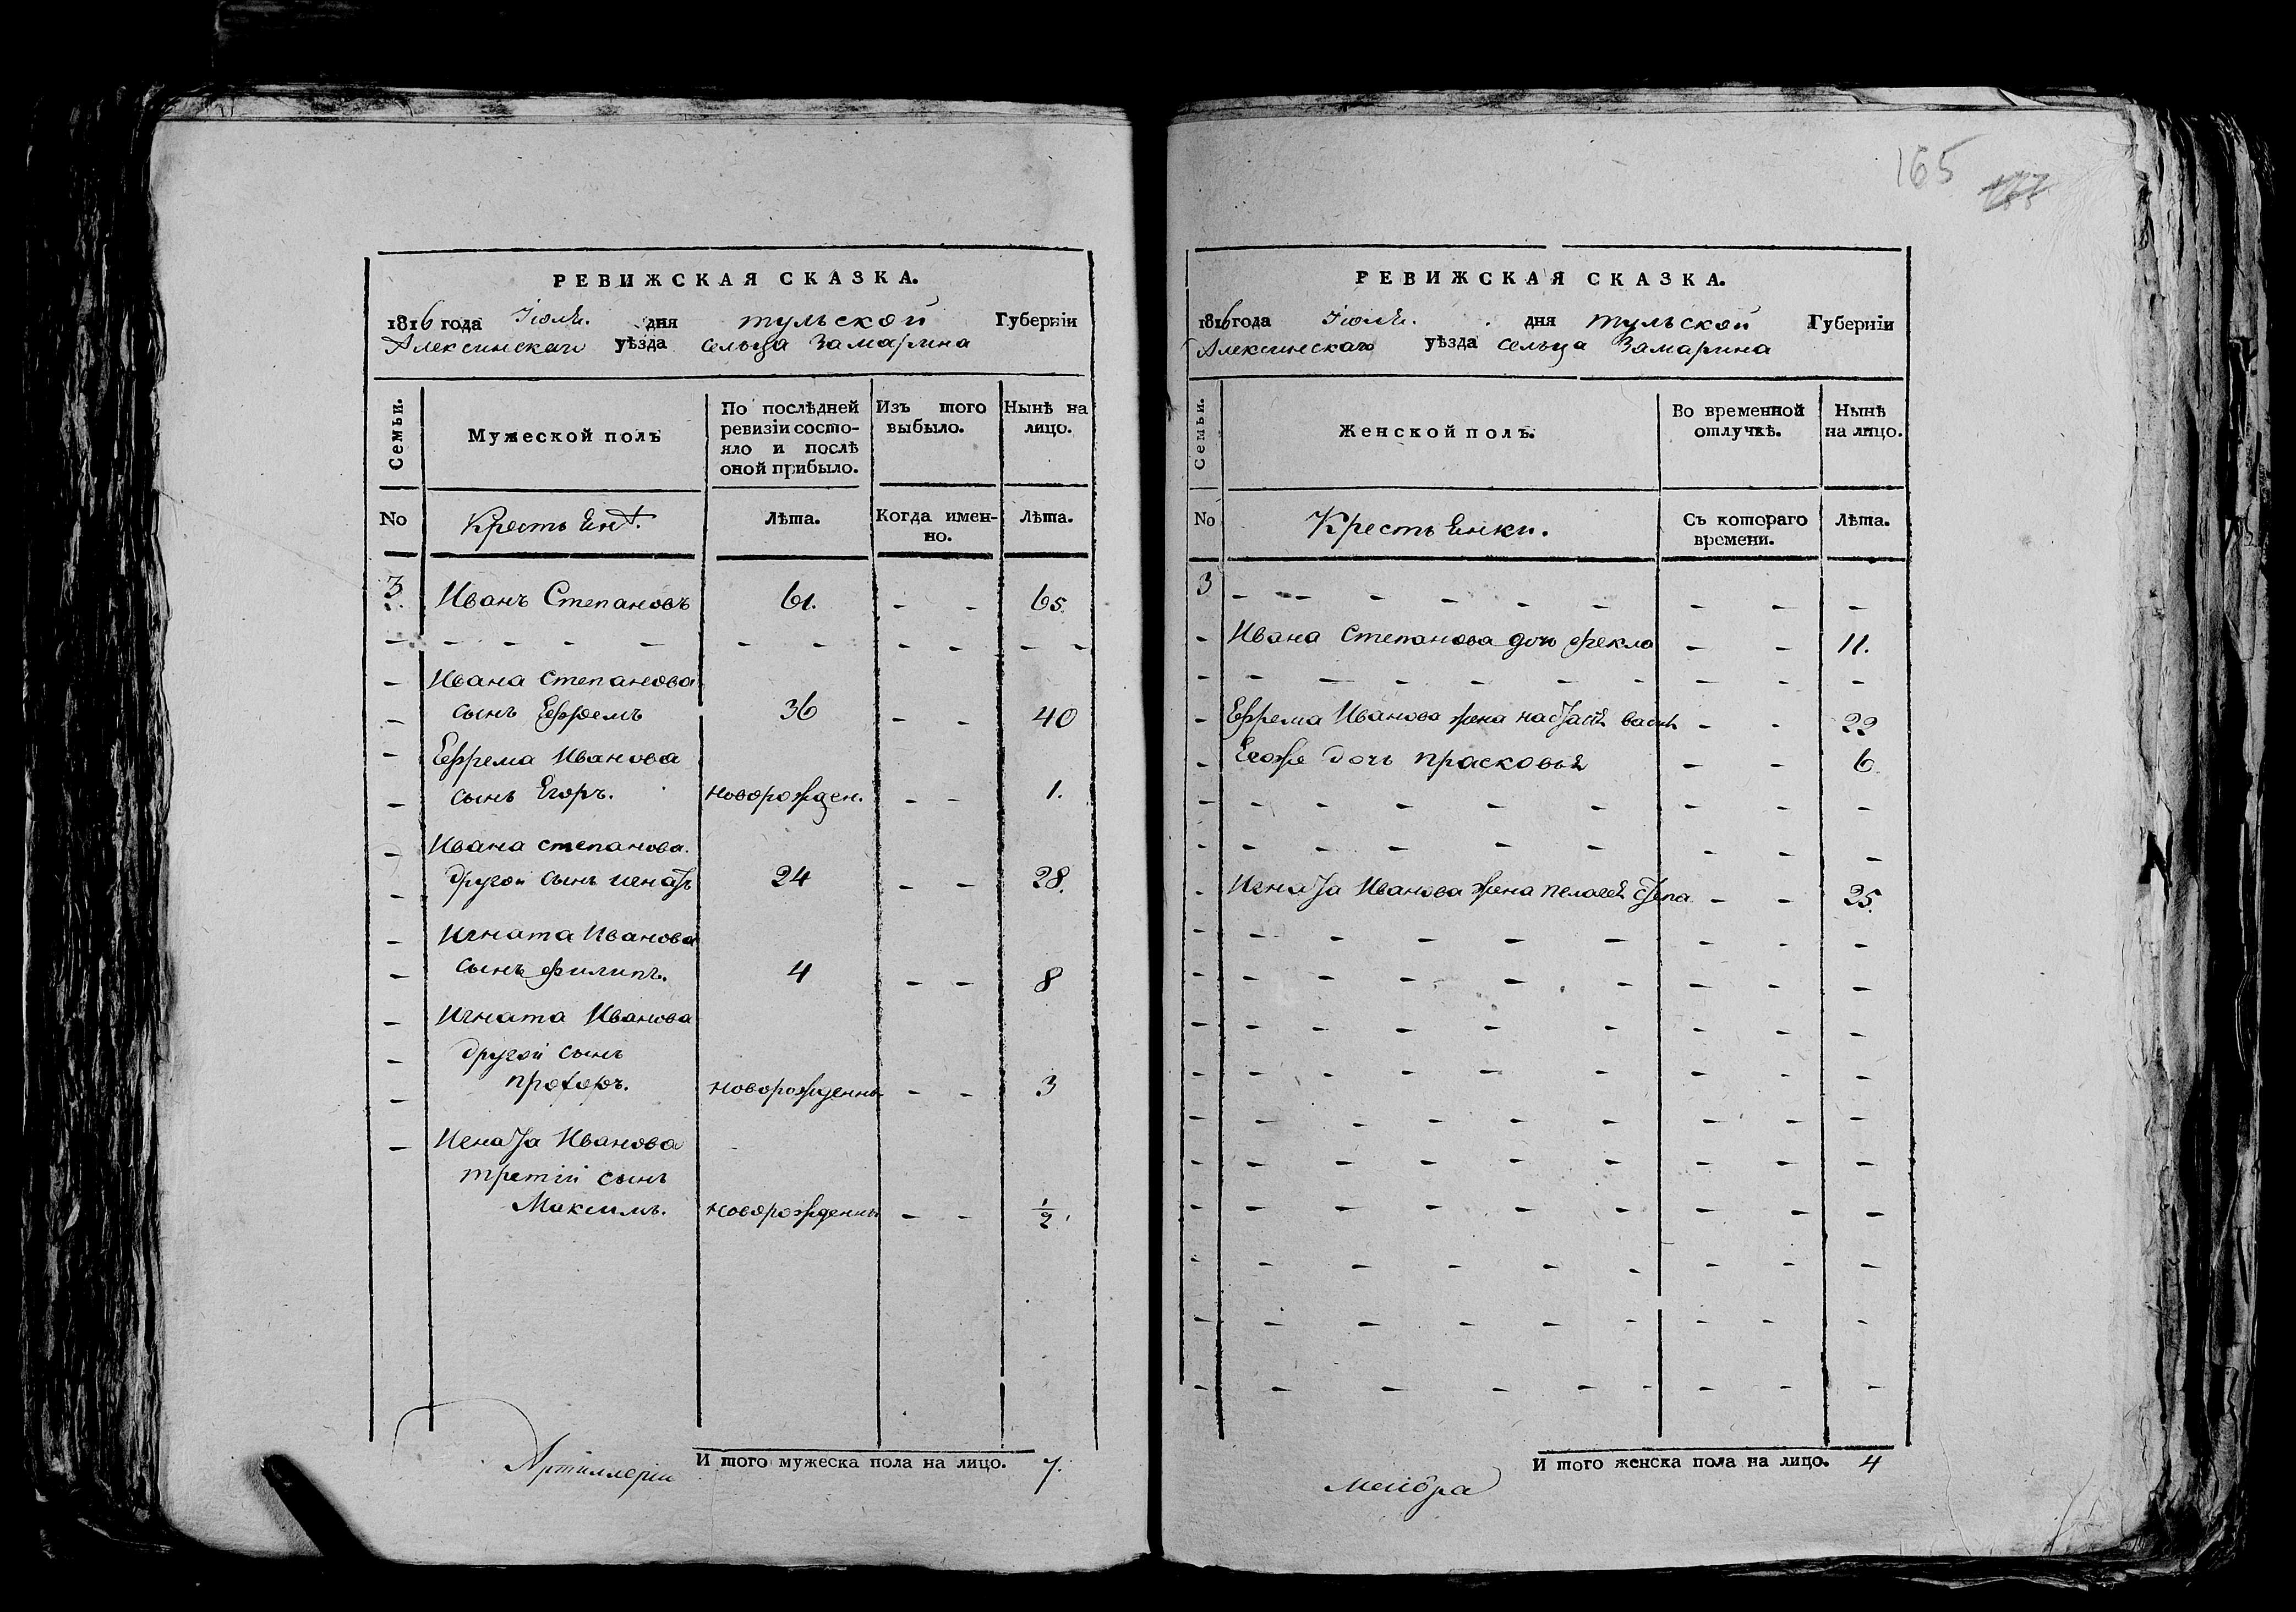 165
РЕВИЖСКАЯ СКАЗКА.
1816 года Июля. дня тульской Губерніи
Алексинскаго уѣзда сельца Замарина
Семьи.
Мужеской полъ
По послѣдней ревизіи состо-
яло и послѣ
оной прибыло.
Изъ того выбыло.
Нынѣ на лицо.
No
Крестьяня.
лѣта.
Когда имен-
но.
Лѣта.
3 Иванъ Степановъ 61. - - 65.
- - - - - - - - - - -
- Ивана Степанова
- сынъ Ефремъ 36 - - 40
- Ефрема Иванова
- сынъ Егоръ. новорожден. - - 1.
- Ивана степанова.
- другой сынъ игнатъ 24 - - 28.
- Игната Иванова
- сынъ филипъ. 4 - - 8
- Игната Иванова
- другой сынъ
- прохоръ. новорожденны - - 3
- Игната Иванова
третій сынъ
Максимъ. новорожденны - - 1/2.
И того мужеска пола на лицо. 7.
Артиллеріи
РЕВИЖСКАЯ СКАЗКА.
1816 года Июля. дня тульской Губерніи
Алексинскаго уѣзда сельца Замарина
Семьи.
Женской полъ.
Во временной
отлучкѣ.
Нынѣ
на лицо.
No
Крестьянки.
Съ котораго
времени.
лѣта.
3 - - - - - - - - -
- Ивана Степанова дочь фекла - - 11.
- - - - - - - - - -
- Ефрема Иванова жена настасья васил - - 22
- Егожъ дочь прасковья - - 6.
- - - - - - - - -
- - - - - - - - -
- Игната Иванова жена пелагея степа - - 25.
- - - - - - - - -
- - - - - - - - -
- - - - - - - - -
- - - - - - - - -
- - - - - - - - -
- - - - - - - - -
- - - - - - - - -
- - - - - - - - -
- - - - - - - - -
- - - - - - - - -
И того женска пола на лицо. 4
Меиора